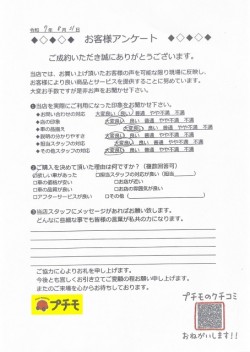 令和 7年 8月 11日
◆◇◆◇◆ お客様アンケート ◆◇◆◇◆
ご成約いただき誠にありがとうございます。
当店では、お買い上げ頂いたお客様の声を可能な限り現場に反映し、
お客様により良い商品とサービスを提供することに努めています。
大変お手数ですが是非お声をお聞かせ下さい。
❶当店を実際にご利用になった印象をお聞かせ下さい。
・お問い合わせの対応 大変良い 良い 普通 やや不満 不満
・当店の印象 大変良い 良い 普通 やや不満 不満
・車の品揃え 大変良い 良い 普通 やや不満 不満
・説明の分かりやすさ 大変良い 良い 普通 やや不満 不満
・担当スタッフの対応 大変良い 良い 普通 やや不満 不満
・その他スタッフの対応 大変良い 良い 普通 やや不満 不満
❷ご購入を決めて頂いた理由は何ですか？（複数回答可）
☑欲しい車があった □担当スタッフの対応が良い（担当 ）
□車の価格が安い □お店が近い
□車の品質が良い □お店の雰囲気が良い
□アフターサービスが良い □その他（ ）
❸当店スタッフにメッセージがあればお願い致します。
どんなに些細な事でもお客様の言葉が私共の力になります。
ご協力に心よりお礼を申し上げます。
今後とも宜しくお引き立てご愛顧の程お願い申し上げます。
またのご来場を心からお待ちしております。
プチモ
プチモのクチコミ
おねがいします!!